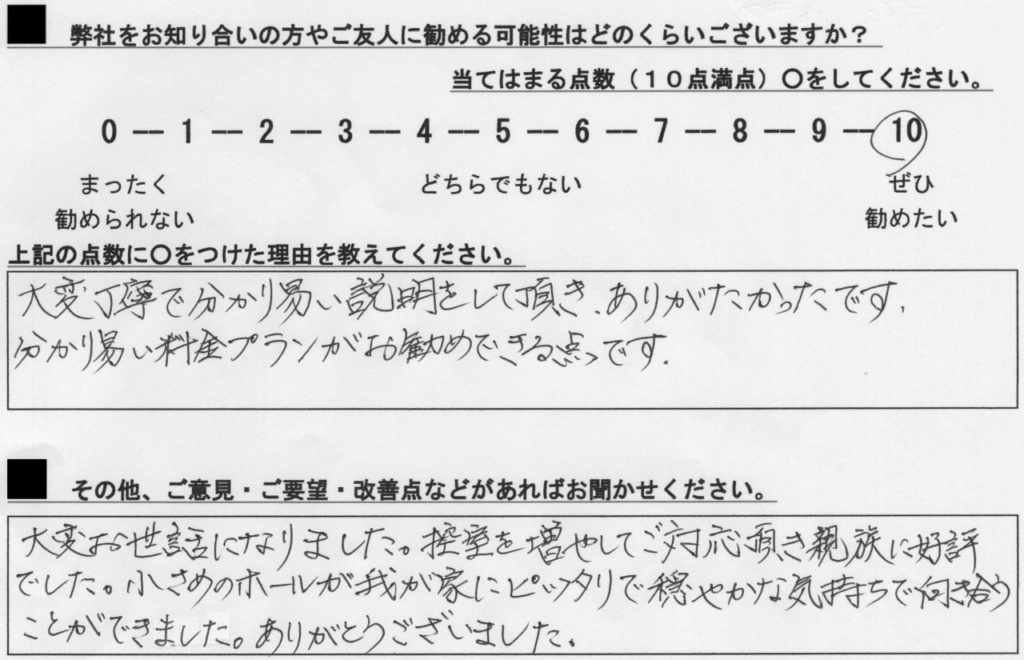 弊社をお知り合いの方やご友人に勧める可能性はどのくらいございますか？
当てはまる点数（１０点満点）〇をしてください。
0 -- 1 -- 2 -- 3 -- 4 -- 5 -- 6 -- 7 -- 8 -- 9 -- 10
まったく どちらでもない ぜひ
勧められない 勧めたい
上記の点数に〇をつけた理由を教えてください。
大変丁寧で分かり易い説明をして頂き、ありがたかったです。
分かり易い料金プランがお勧めできる点です。
その他、ご意見・ご要望・改善点などがあればお聞かせください。
大変お世話になりました。控室を増やしてご対応頂き親族に好評
でした。小さめのホールが我が家にピッタリで穏やかな気持ちで向き合う
ことができました。ありがとうございました。